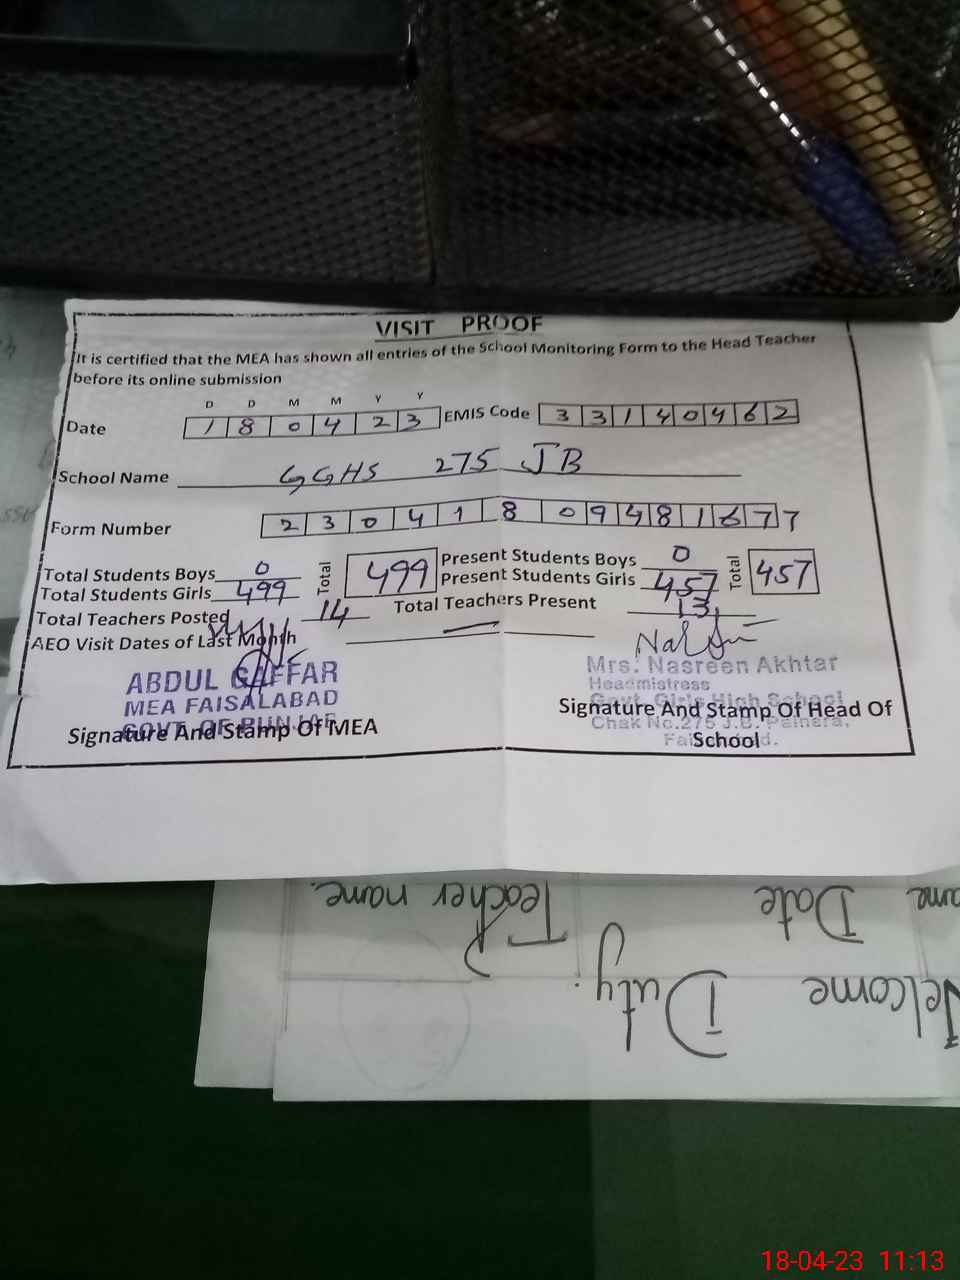 VISIT PROOF
It is certified that the MEA has shown all entries of the School Monitoring Form to the Head Teacher
before its online submission
D D M M Y Y
Date 1 8 0 4 2 3 EMIS Code 3 3 1 4 0 4 6 2
School Name GGHS 275 JB
Form Number 2 3 0 4 1 8 0 9 4 8 1 6 7 7
Total Students Boys 0 Total 499 Present Students Boys 0 Total 457
Total Students Girls 499 Present Students Girls 457
Total Teachers Posted 14 Total Teachers Present 13
AEO Visit Dates of Last Month
ABDUL GAFFAR
MEA FAISALABAD
GOVT. OF PUNJAB
Signature And Stamp Of MEA
Mrs. Nasreen Akhtar
Headmistress
Govt. Girls High School
Chak No.275 J.B.
Signature And Stamp Of Head Of
School
Teacher name.
Date
Duty.
Welcome
18-04-23 11:13